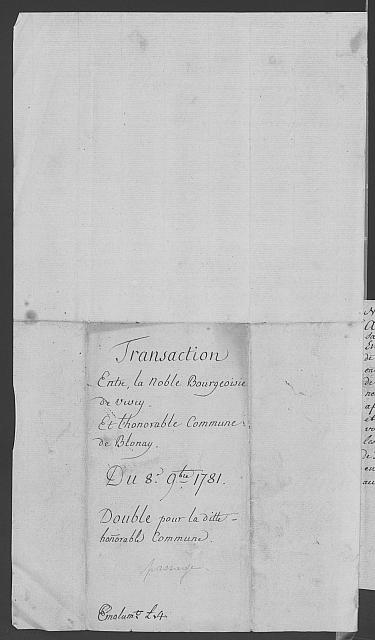 Transaction
Entre, la Noble Bourgeoisie
de Vevey.
Et l'honorable Commune
de Blonay.
Du 8.e 9bre 1781.
Double pour la ditte
honorable Commune.
passage
Emolumt. L 4